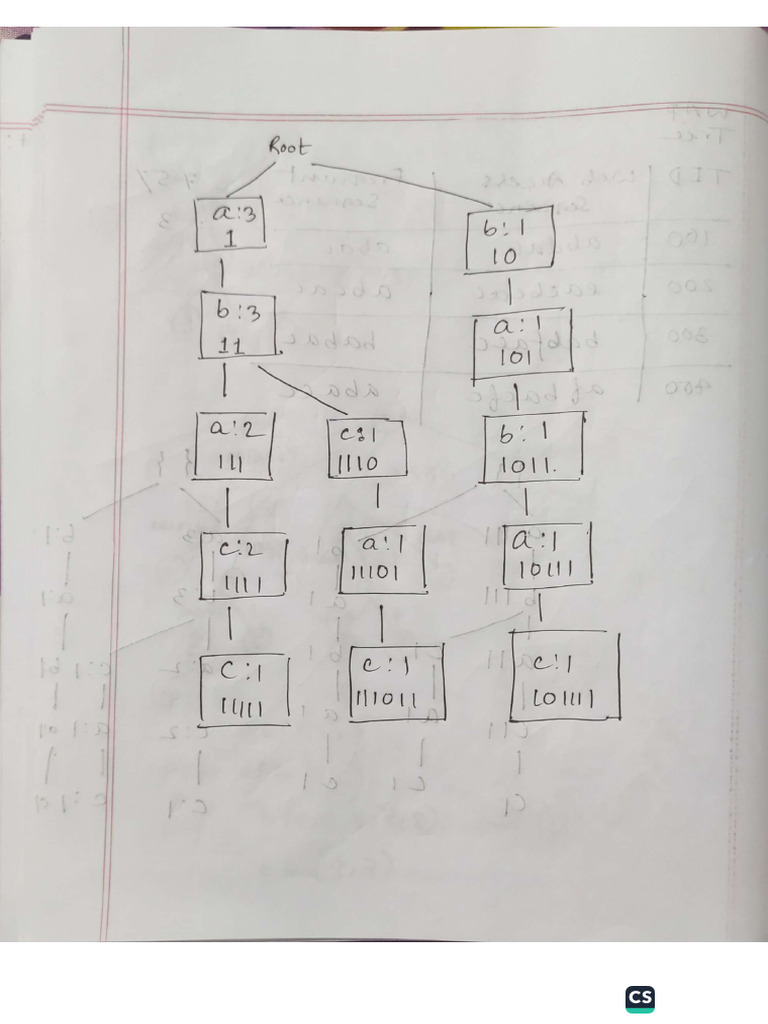 Root
a:3
1
b:1
10
b:3
11
a:1
101
a:2
111
c:1
1110
b:1
1011.
c:2
1111
a:1
11101
a:1
10111
c:1
11111
c:1
111011
c:1
101111
CS